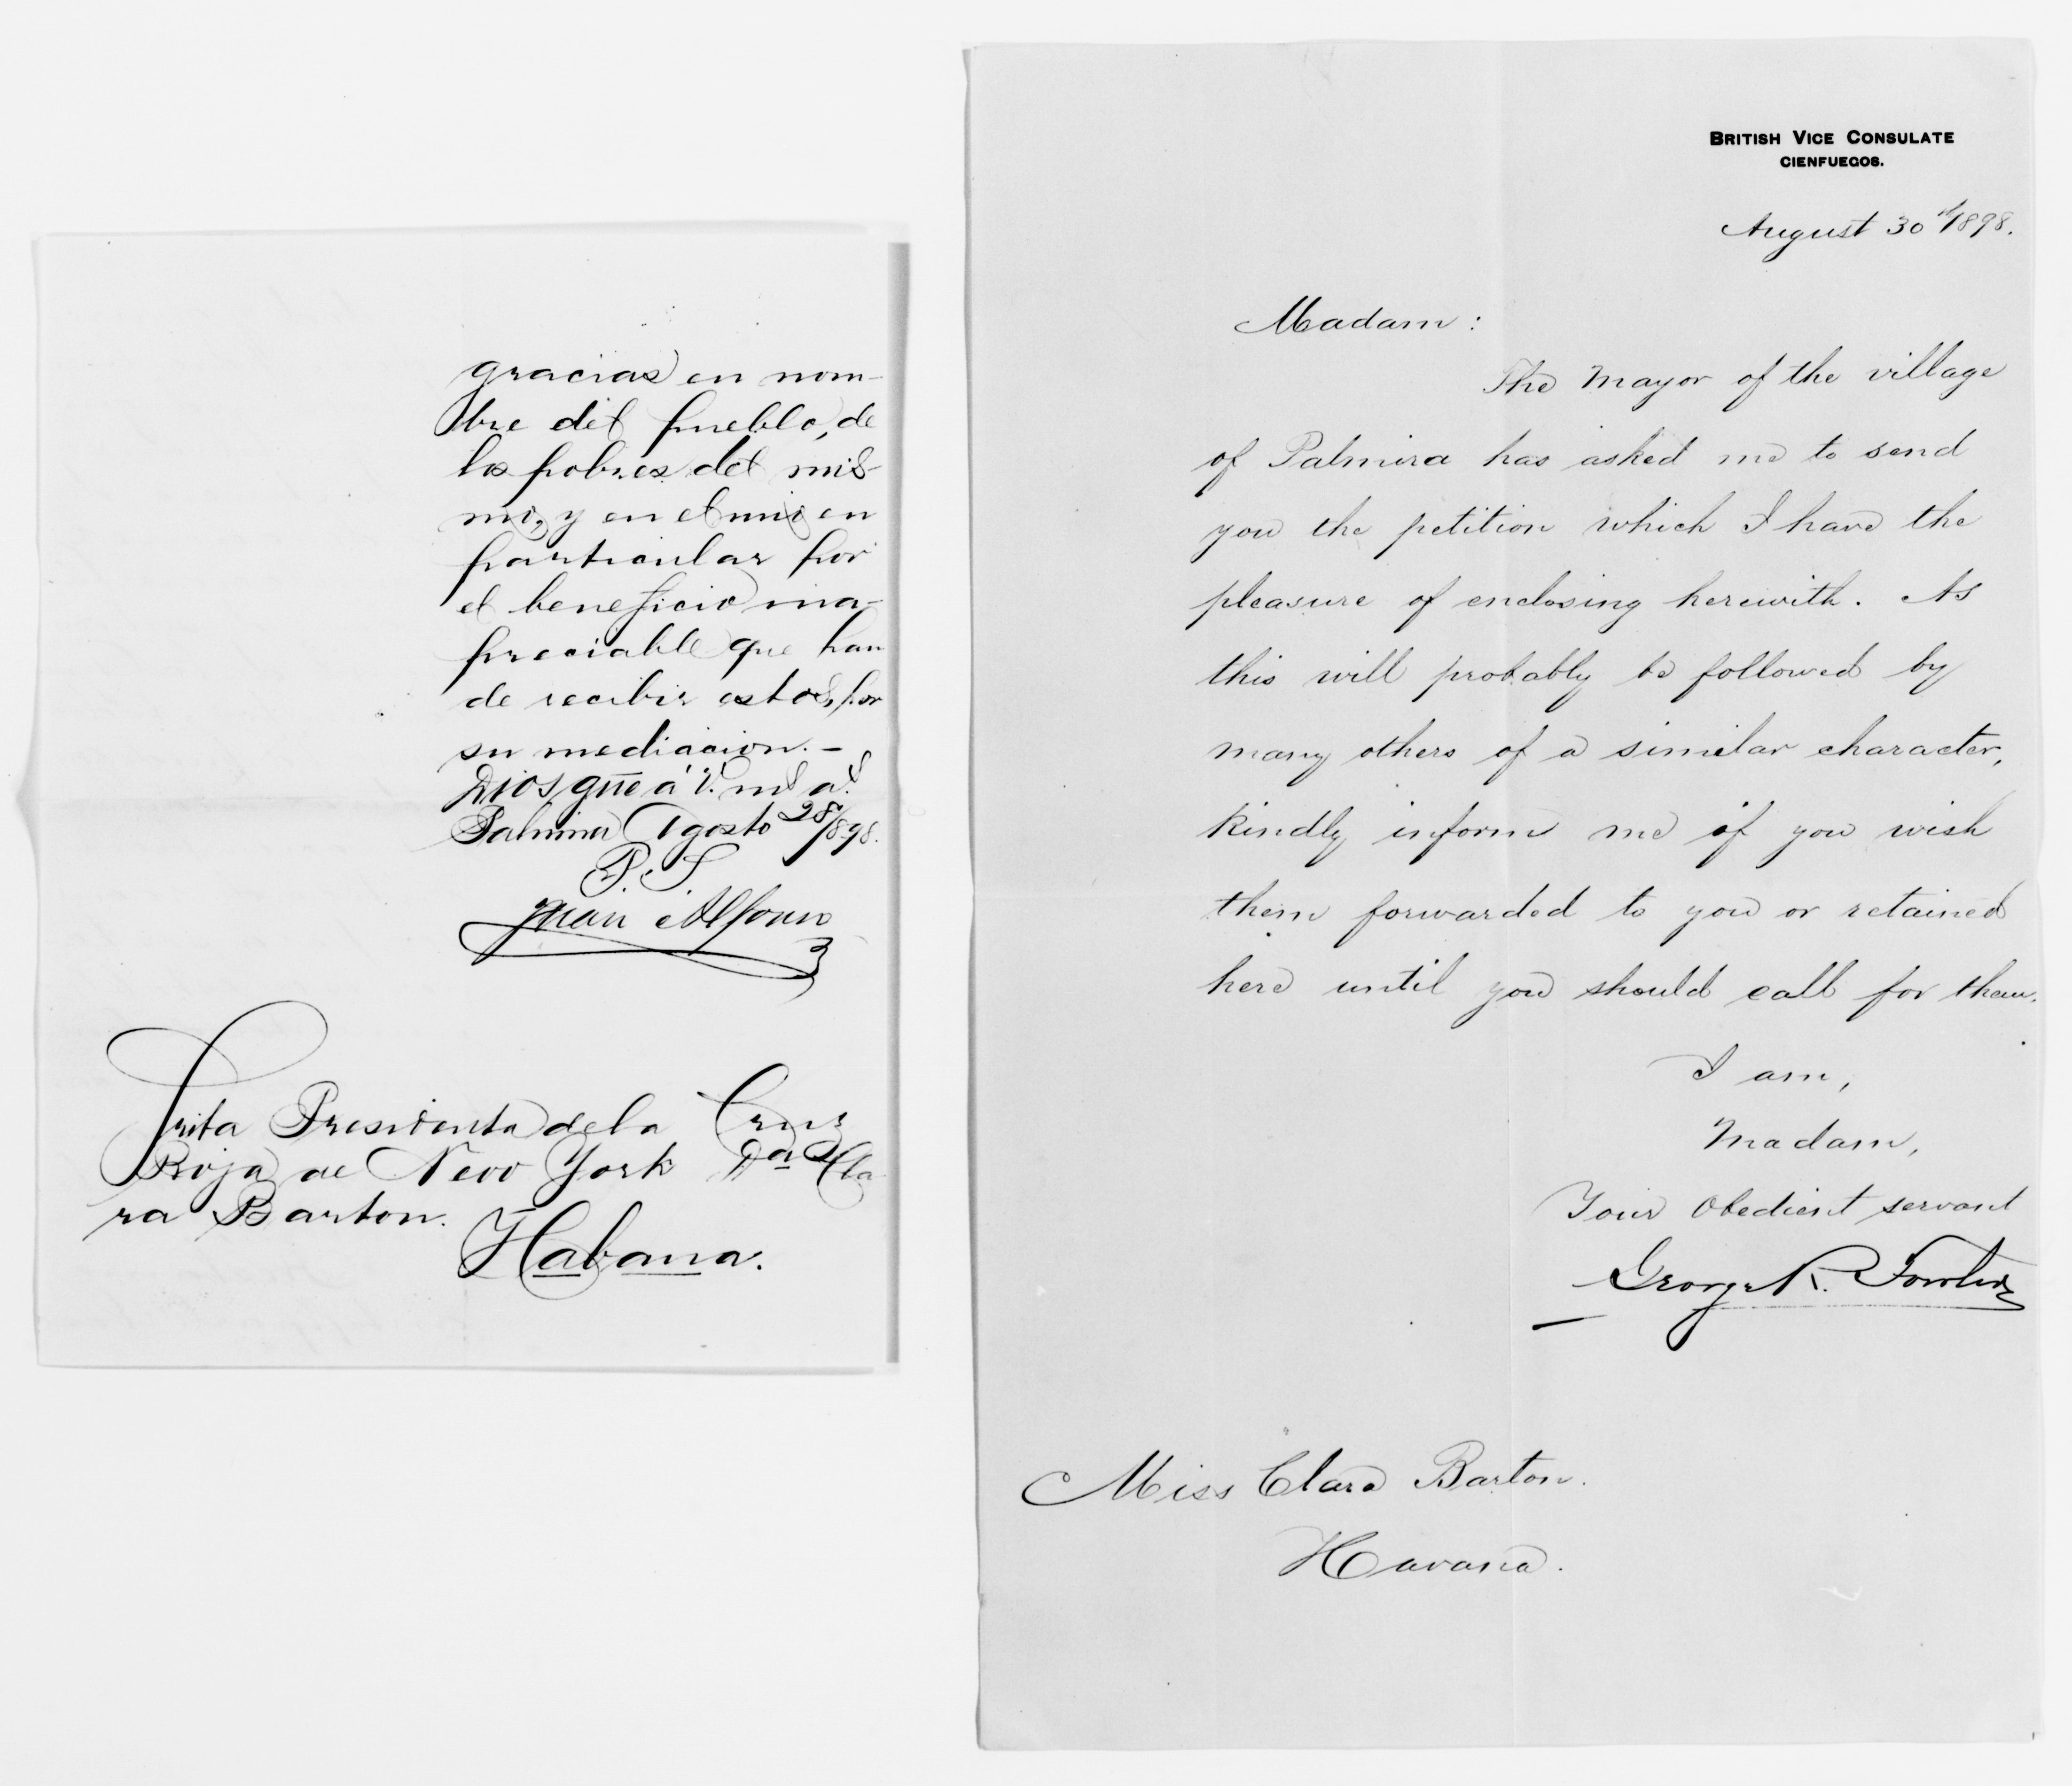 gracias en nom-
bre del pueblo, de
los pobres del mis-
mo, y en el mio en
particular por
el beneficio ina-
preciable que han
de recibir estos, por
su mediacion. —
Dios gūe á V. ms as
Palmira Agosto 28/898.
P. S.
Juan Alfonso
Srita Presidenta de la Cruz
Roja de New York Da Cla-
ra Barton.
Habana.
BRITISH VICE CONSULATE
CIENFUEGOS.
August 30th 1898.
Madam:
The Mayor of the village
of Palmira has asked me to send
you the petition which I have the
pleasure of enclosing herewith. As
this will probably be followed by
many others of a similar character,
kindly inform me if you wish
them forwarded to you or retained
here until you should call for them.
I am,
Madam,
Your Obedient servant
George R. Fowler
Miss Clara Barton.
Havana.